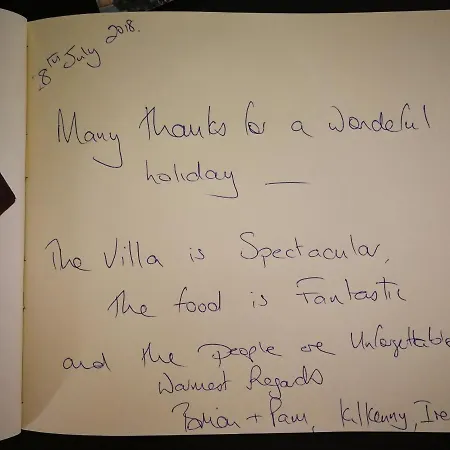 8th July 2018.
Many thanks for a wonderful
holiday —
The Villa is Spectacular,
The food is Fantastic
and the people are Unforgettable
Warmest Regards
Brian + Pam, Kilkenny, Ire